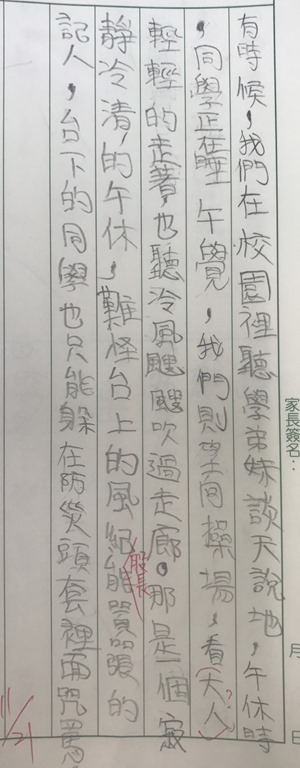 有時候，我們在校園裡聽學弟妹談天說地，午休時
，同學正在睡午覺，我們則望向操場，看（大人）?
輕輕的走著，也聽冷風颼颼吹過走廊。那是一個寂
靜冷清的午休，難怪台上的風紀股長能囂張的
記人，台下的同學也只能躲在防災頭套裡面咒罵。
家長簽名：
月
日
11/21